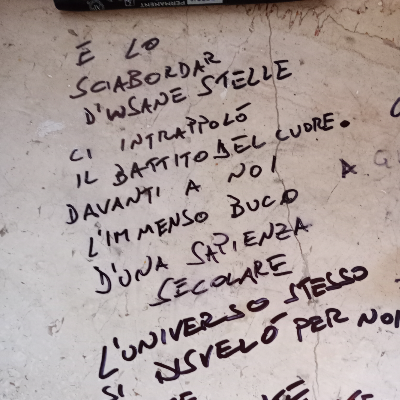 PERMANENT
E LO
SCIABORDAR
D'INSANE STELLE
CI INTRAPPOLÒ
IL BATTITO DEL CUORE.
DAVANTI A NOI
L'IMMENSO BUCO
D'UNA SAPIENZA
SECOLARE
L'UNIVERSO STESSO
SI DISVELÒ PER NOI